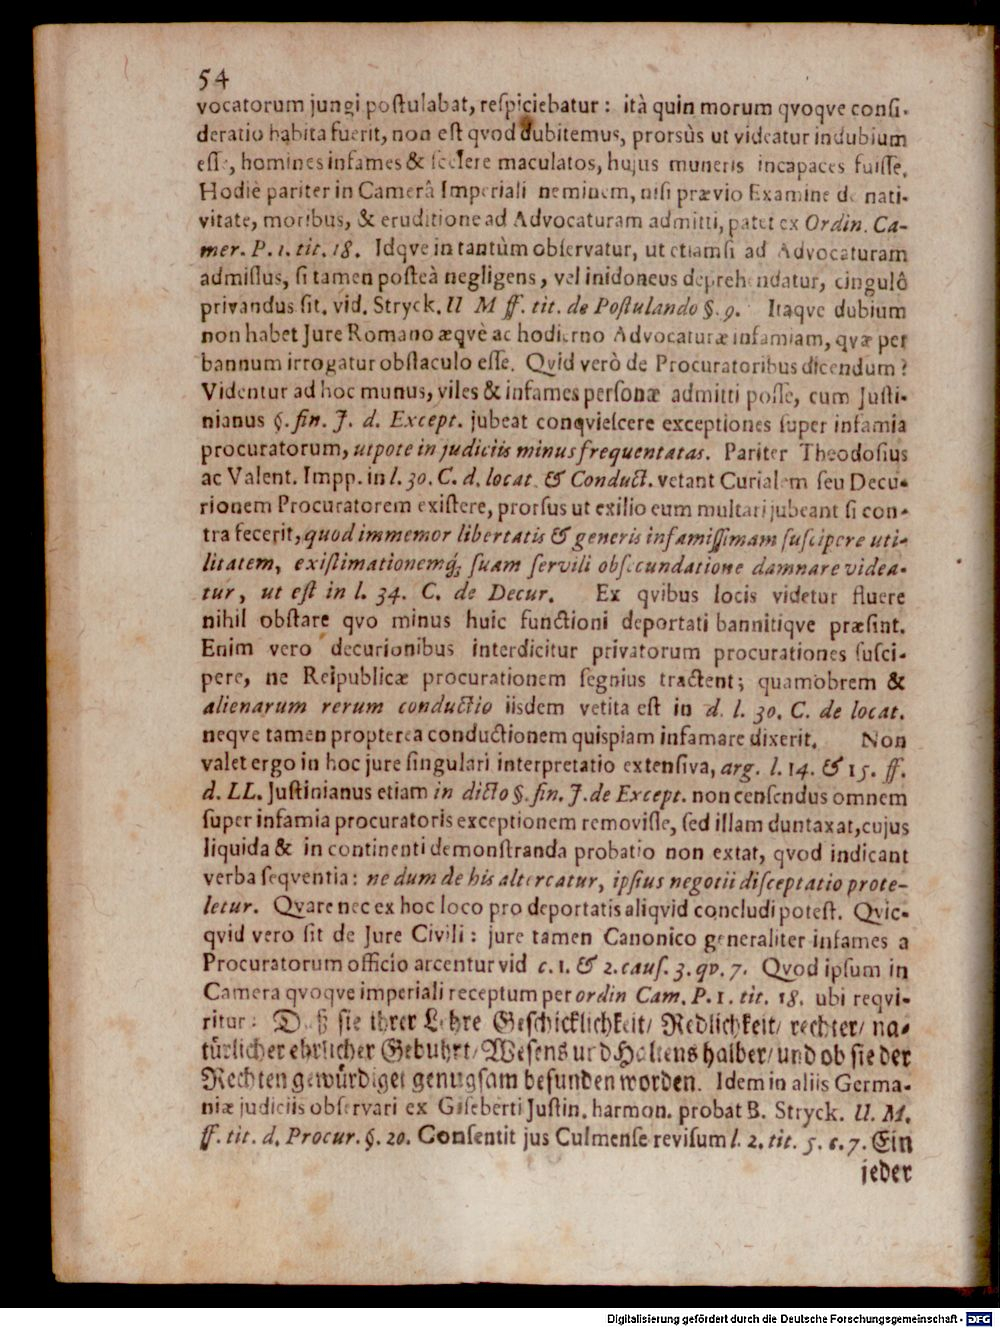 54
vocatorum jungi poſtulabat, reſpiciebatur: ità quin morum qvoqve conſi-
deratio habita fuerit, non eſt qvod dubitemus, prorsùs ut videatur indubium
eſſe, homines infames & ſcelere maculatos, hujus muneris incapaces fuiſſe.
Hodiè pariter in Camerâ Imperiali neminem, niſi prævio Examine de nati-
vitate, moribus, & eruditione ad Advocaturam admitti, patet ex Ordin. Ca-
mer. P. 1. tit. 18. Idqve in tantùm obſervatur, ut etiamſi ad Advocaturam
admiſſus, ſi tamen poſteà negligens, vel inidoneus deprehendatur, cingulô
privandus ſit. vid. Stryck. U M ff. tit. de Poſtulando §. 9. Itaqve dubium
non habet Jure Romano æqvè ac hodierno Advocaturæ infamiam, qvæ per
bannum irrogatur obſtaculo eſſe. Qvid verò de Procuratoribus dicendum?
Videntur ad hoc munus, viles & infames perſonæ admitti poſſe, cum Juſti-
nianus §. fin. J. d. Except. jubeat conqvieſcere exceptiones ſuper infamia
procuratorum, utpote in judiciis minus frequentatas. Pariter Theodoſius
ac Valent. Impp. in l. 30. C. d. locat. & Conduct. vetant Curialem ſeu Decu-
rionem Procuratorem exiſtere, prorſus ut exilio eum multari jubeant ſi con-
tra fecerit, quod immemor libertatis & generis infamiſſimam ſuſcipere uti-
litatem, exiſtimationemq́; ſuam ſervili obſecundatione damnare videa-
tur, ut eſt in l. 34. C. de Decur. Ex qvibus locis videtur fluere
nihil obſtare qvo minus huic functioni deportati bannitiqve præſint.
Enim vero decurionibus interdicitur privatorum procurationes ſuſci-
pere, ne Reipublicæ procurationem ſegnius tractent; quamobrem &
alienarum rerum conductio iisdem vetita eſt in d. l. 30. C. de locat.
neqve tamen propterea conductionem quispiam infamare dixerit. Non
valet ergo in hoc jure ſingulari interpretatio extenſiva, arg. l. 14. & 15. ff.
d. LL. Juſtinianus etiam in dicto §. fin. J. de Except. non cenſendus omnem
ſuper infamia procuratoris exceptionem removiſſe, ſed illam duntaxat, cujus
liquida & in continenti demonſtranda probatio non extat, qvod indicant
verba ſeqventia: ne dum de his altercatur, ipſius negotii diſceptatio prote-
letur. Qvare nec ex hoc loco pro deportatis aliqvid concludi poteſt. Qvic-
qvid vero ſit de Jure Civili: jure tamen Canonico generaliter infames a
Procuratorum officio arcentur vid c. 1. & 2. cauſ. 3. qv. 7. Qvod ipſum in
Camera qvoqve imperiali receptum per ordin Cam. P. 1. tit. 18. ubi reqvi-
ritur: Daß ſie ihrer Lehre Geſchicklichkeit/ Redlichkeit/ rechter/ na-
türlicher ehrlicher Gebuhrt/ Weſens und Haltens halber/ und ob ſie der
Rechten gewürdiget genugſam befunden worden. Idem in aliis Germa-
niæ judiciis obſervari ex Giſeberti Juſtin. harmon. probat B. Stryck. U. M.
ff. tit. d. Procur. §. 20. Conſentit jus Culmenſe reviſum l. 2. tit. 5. c. 7. Ein
jeder
Digitalisierung gefördert durch die Deutsche Forschungsgemeinschaft - DFG